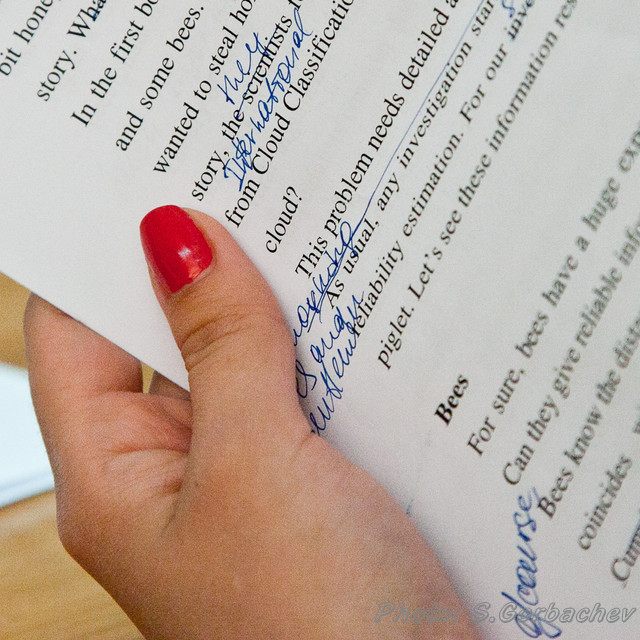 bit hone
story. Wha
In the first b
and some bees.
wanted to steal ho
they
story, the scientists
International
from Cloud Classificatio
cloud?
This problem needs detailed a
As usual, any investigation star
reliability estimation. For our inve
piglet. Let's see these information res
Bees
For sure, bees have a huge exp
Can they give reliable info
Bees know the dista
of course,
coincides w
Cumu
Photo: S.Gorbachev